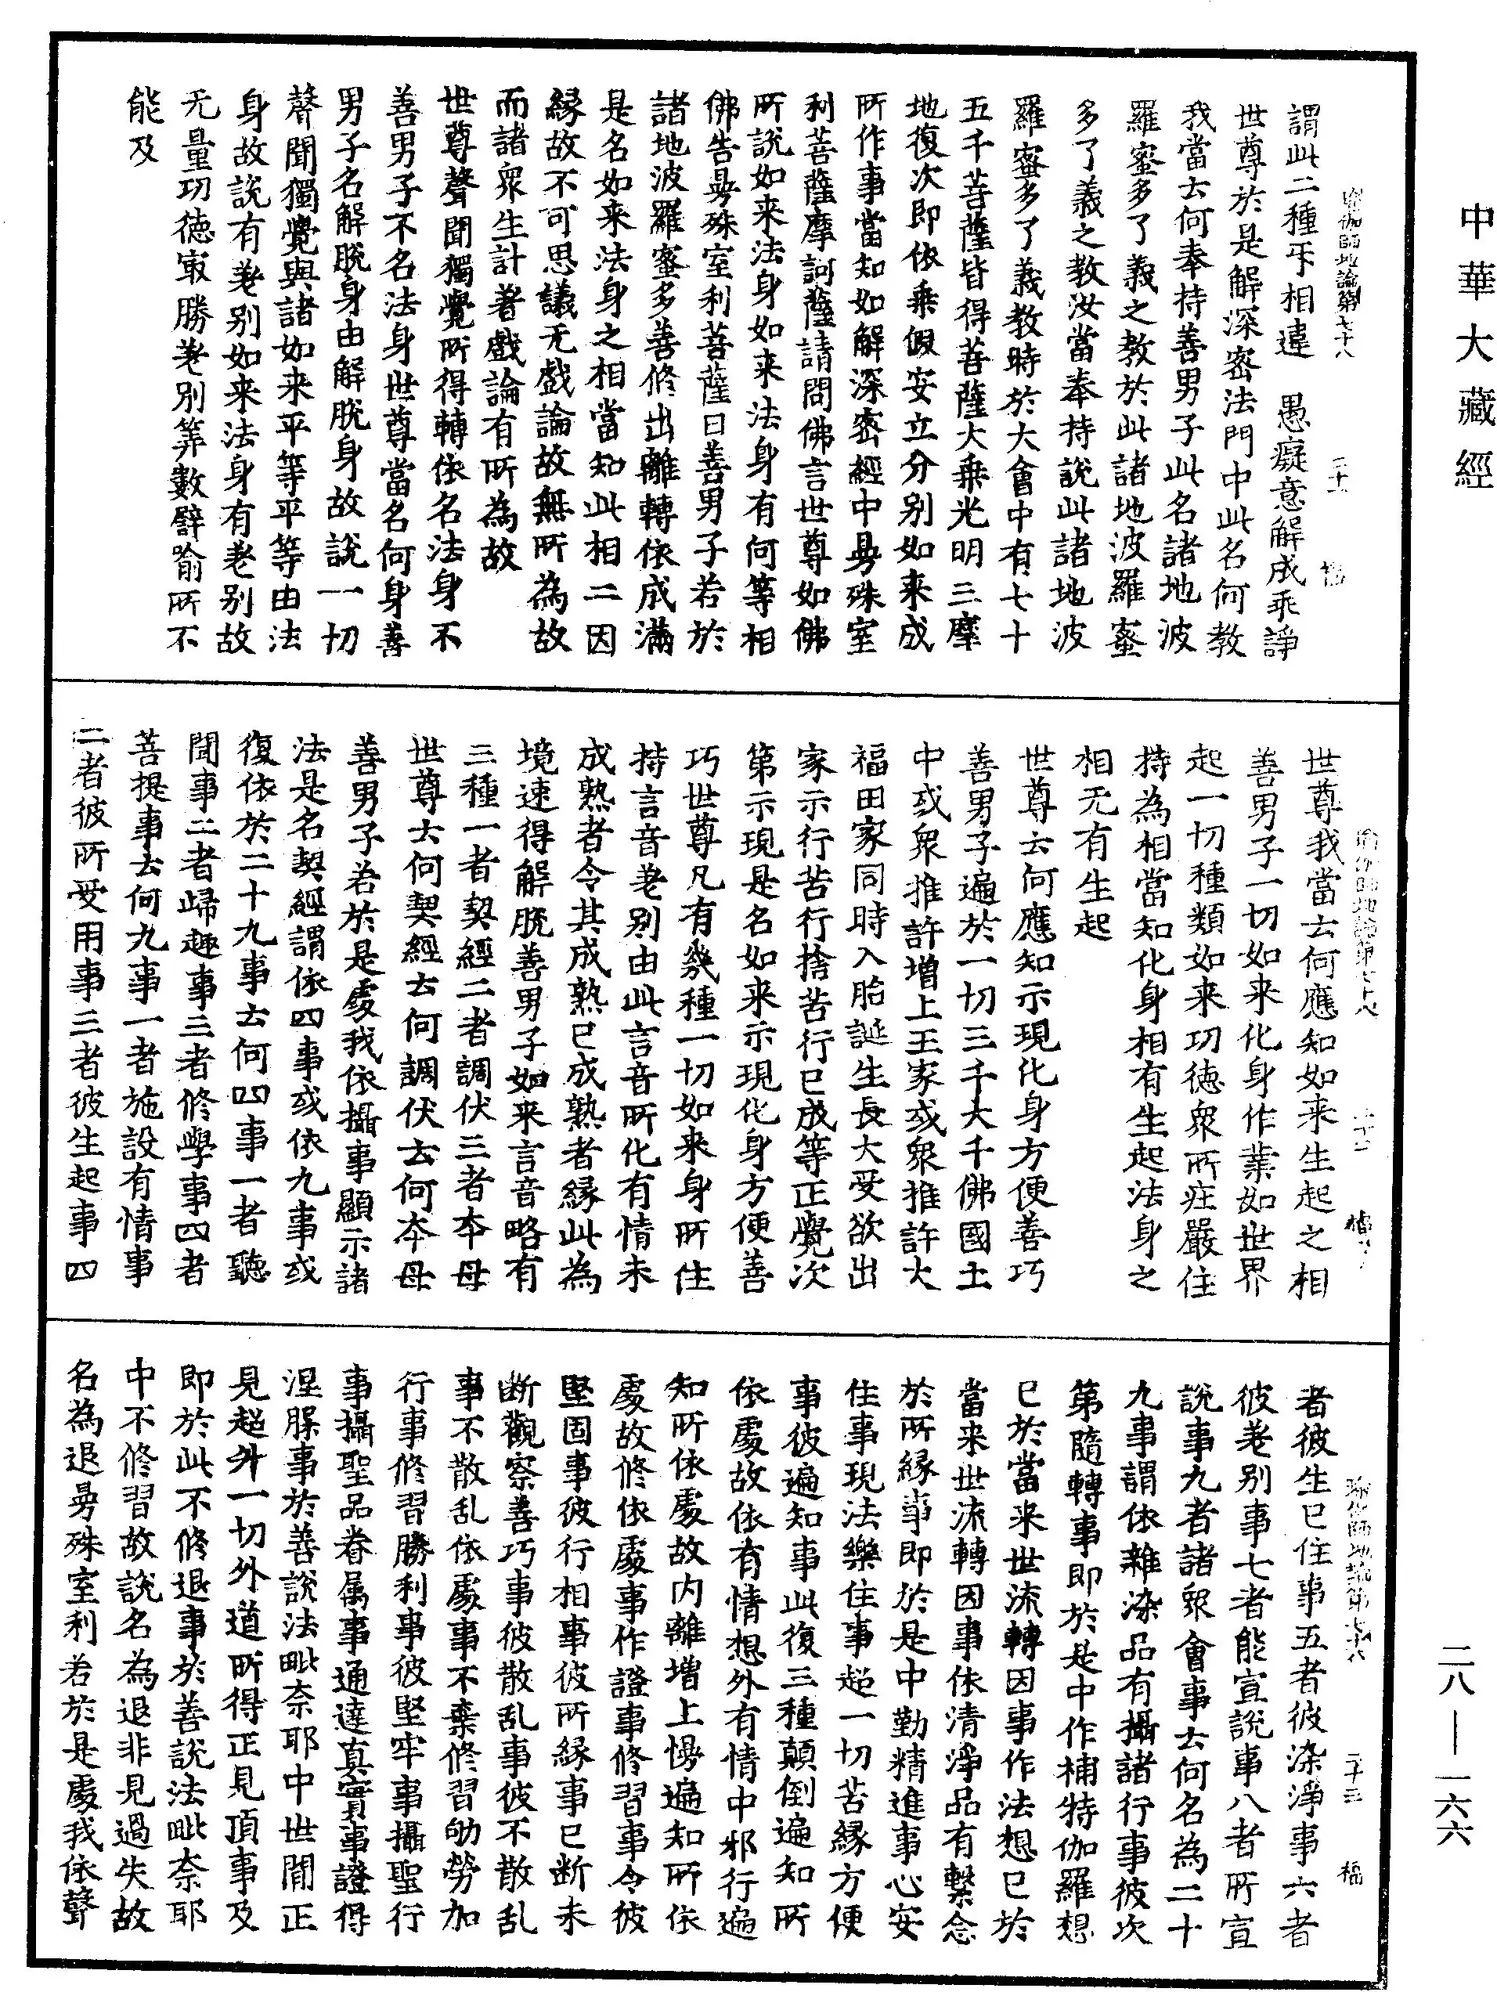 中華大藏經
瑜伽師地論第七十八 二十一 福
謂此二種互相違 愚癡意解成乖諍
世尊於是解深密法門中此名何教
我當云何奉持善男子此名諸地波
羅蜜多了義之教於此諸地波羅蜜
多了義之教汝當奉持說此諸地波
羅蜜多了義教時於大會中有七十
五千菩薩皆得菩薩大乘光明三摩
地復次即依乘假安立分别如来成
所作事當知如解深密經中曼殊室
利菩薩摩訶薩請問佛言世尊如佛
所說如来法身如来法身有何等相
佛告曼殊室利菩薩曰善男子若於
諸地波羅蜜多善修出離轉依成滿
是名如来法身之相當知此相二因
縁故不可思議无戲論故無所為故
而諸衆生計著戲論有所為故
世尊聲聞獨覺所得轉依名法身不
善男子不名法身世尊當名何身善
男子名解脫身由解脫身故說一切
聲聞獨覺與諸如来平等平等由法
身故說有差别如来法身有差别故
无量功德冣勝差别筭數譬喻所不
能及
瑜伽師地論第七十八 二十二 福
世尊我當云何應知如来生起之相
善男子一切如来化身作業如世界
起一切種類如来功德衆所莊嚴住
持為相當知化身相有生起法身之
相无有生起
世尊云何應知示現化身方便善巧
善男子遍於一切三千大千佛國土
中或衆推許增上王家或衆推許大
福田家同時入胎誕生長大受欲出
家示行苦行捨苦行已成等正覺次
第示現是名如来示現化身方便善
巧世尊凡有幾種一切如来身所住
持言音差别由此言音所化有情未
成熟者令其成熟已成熟者縁此為
境速得解脫善男子如来言音略有
三種一者契經二者調伏三者本母
世尊云何契經云何調伏云何本母
善男子若於是處我依攝事顯示諸
法是名契經謂依四事或依九事或
復依於二十九事云何四事一者聽
聞事二者歸趣事三者修學事四者
菩提事云何九事一者施設有情事
二者彼所受用事三者彼生起事四
瑜伽師地論第七十八 二十三 福
者彼生已住事五者彼染淨事六者
彼差别事七者能宣說事八者所宣
說事九者諸衆會事云何名為二十
九事謂依雜染品有攝諸行事彼次
第隨轉事即於是中作補特伽羅想
已於當来世流轉因事作法想已於
當来世流轉因事依清淨品有繫念
於所縁事即於是中勤精進事心安
住事現法樂住事超一切苦縁方便
事彼遍知事此復三種顛倒遍知所
依處故依有情想外有情中邪行遍
知所依處故内離增上慢遍知所依
處故修依處事作證事修習事令彼
堅固事彼行相事彼所縁事已断未
断觀察善巧事彼散乱事彼不散乱
事不散乱依處事不棄修習劬勞加
行事修習勝利事彼堅牢事攝聖行
事攝聖品眷属事通達真實事證得
涅槃事於善說法毗奈耶中世間正
見超升一切外道所得正見頂事及
即於此不修退事於善說法毗奈耶
中不修習故說名為退非見過失故
名為退曼殊室利若於是處我依聲
二八—一六六